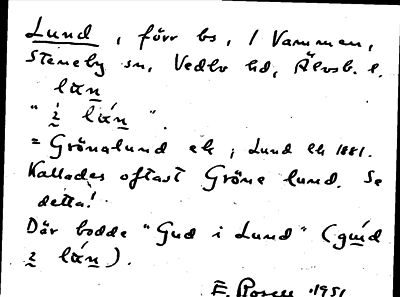 Lund, förr bs, i Vammen,
Steneby sn, Vedbo hd, Älvsb. l.
læn
" i læn ".
= Grönalund ek; Lund lh 1881.
Kallades oftast Gröne lund. Se
detta!
Där bodde "Gud i Lund" (gud
i læn).
E. Rosell 1951